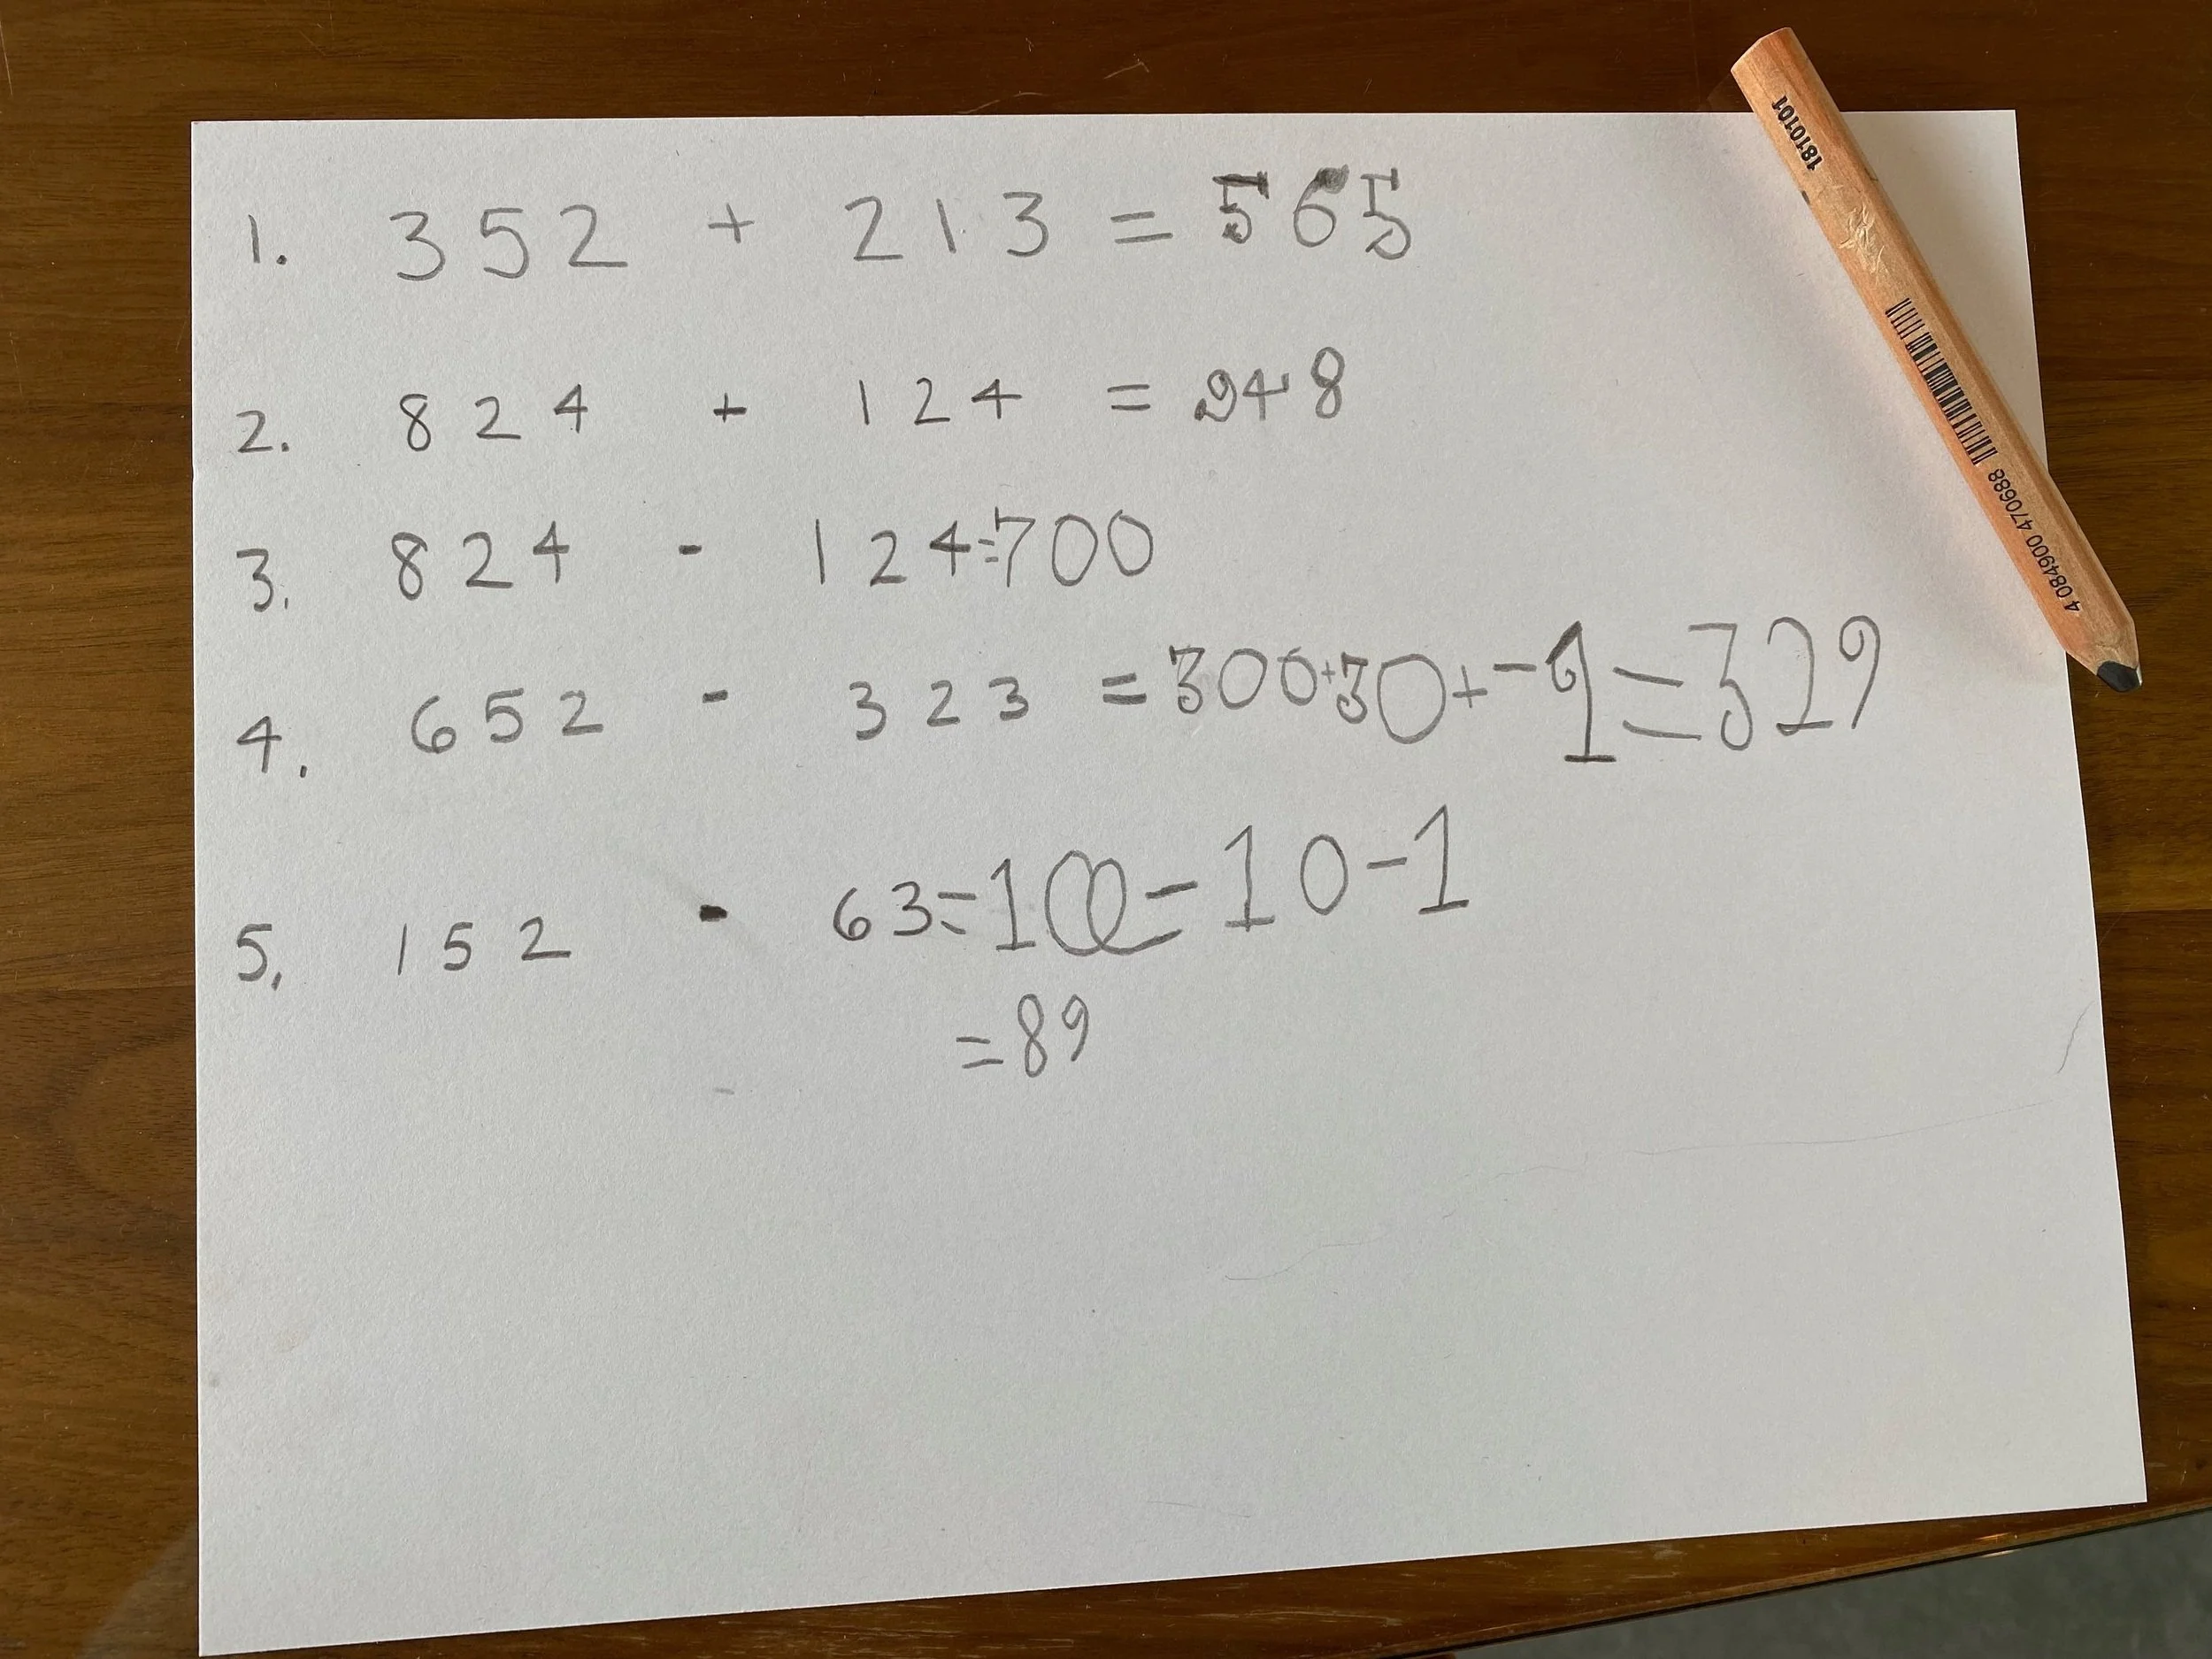 1. 352 + 213 = 565
2. 824 + 124 = 948
3. 824 - 124=700
4. 652 - 323 =300+30+-1=329
5. 152 - 63=100-10-1
=89
1810101
4 084900 470688